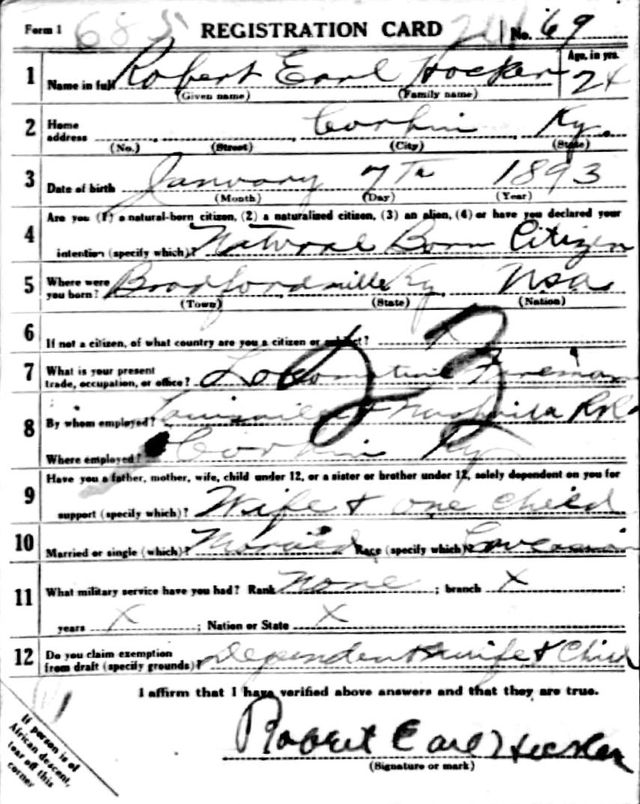 Form 1 685 REGISTRATION CARD No. 69
1 Name in full Robert Earl Hocker Age, in yrs. 24
(Given name) (Family name)
2 Home address Corbin Ky.
(No.) (Street) (City) (State)
3 Date of birth January 7th 1893
(Month) (Day) (Year)
Are you (1) a natural-born citizen, (2) a naturalized citizen, (3) an alien, (4) or have you declared your
4 intention (specify which)? Natural Born Citizen
5 Where were you born? Bradfordsville Ky USA
(Town) (State) (Nation)
6 If not a citizen, of what country are you a citizen or subject? X
7 What is your present trade, occupation, or office? Locomotive Fireman
23
8 By whom employed? Louisville & Nashville RR
Where employed? Corbin Ky
Have you a father, mother, wife, child under 12, or a sister or brother under 12, solely dependent on you for
9 support (specify which)? Wife & one child
10 Married or single (which)? Married Race (specify which)? Caucasian
11 What military service have you had? Rank None ; branch X
years X ; Nation or State X
12 Do you claim exemption from draft (specify grounds)? Dependent wife & Child
I affirm that I have verified above answers and that they are true.
Robert Earl Hocker
(Signature or mark)
If person is of
African descent,
tear off this
corner